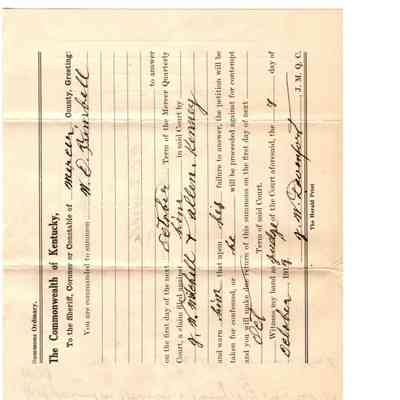 Summons Ordinary.
The Commonwealth of Kentucky,
To the Sheriff, Coroner or Constable of Mercer County, Greeting:
You are commanded to summon W. O. Brimbell
to answer
on the first day of the next October Term of the Mercer Quarterly
Court, a claim filed against him in said Court by
J. N. Mitchell & Allen Kenney
and warn him that upon his failure to answer, the petition will be
taken for confessed, or he will be proceeded against for contempt
and you will make due return of this summons on the first day of next
Oct Term of said Court.
Witness my hand as judge of the Court aforesaid, the 7 day of
October 1917.
J. W. Davenport, J. M. Q. C.
The Herald Print